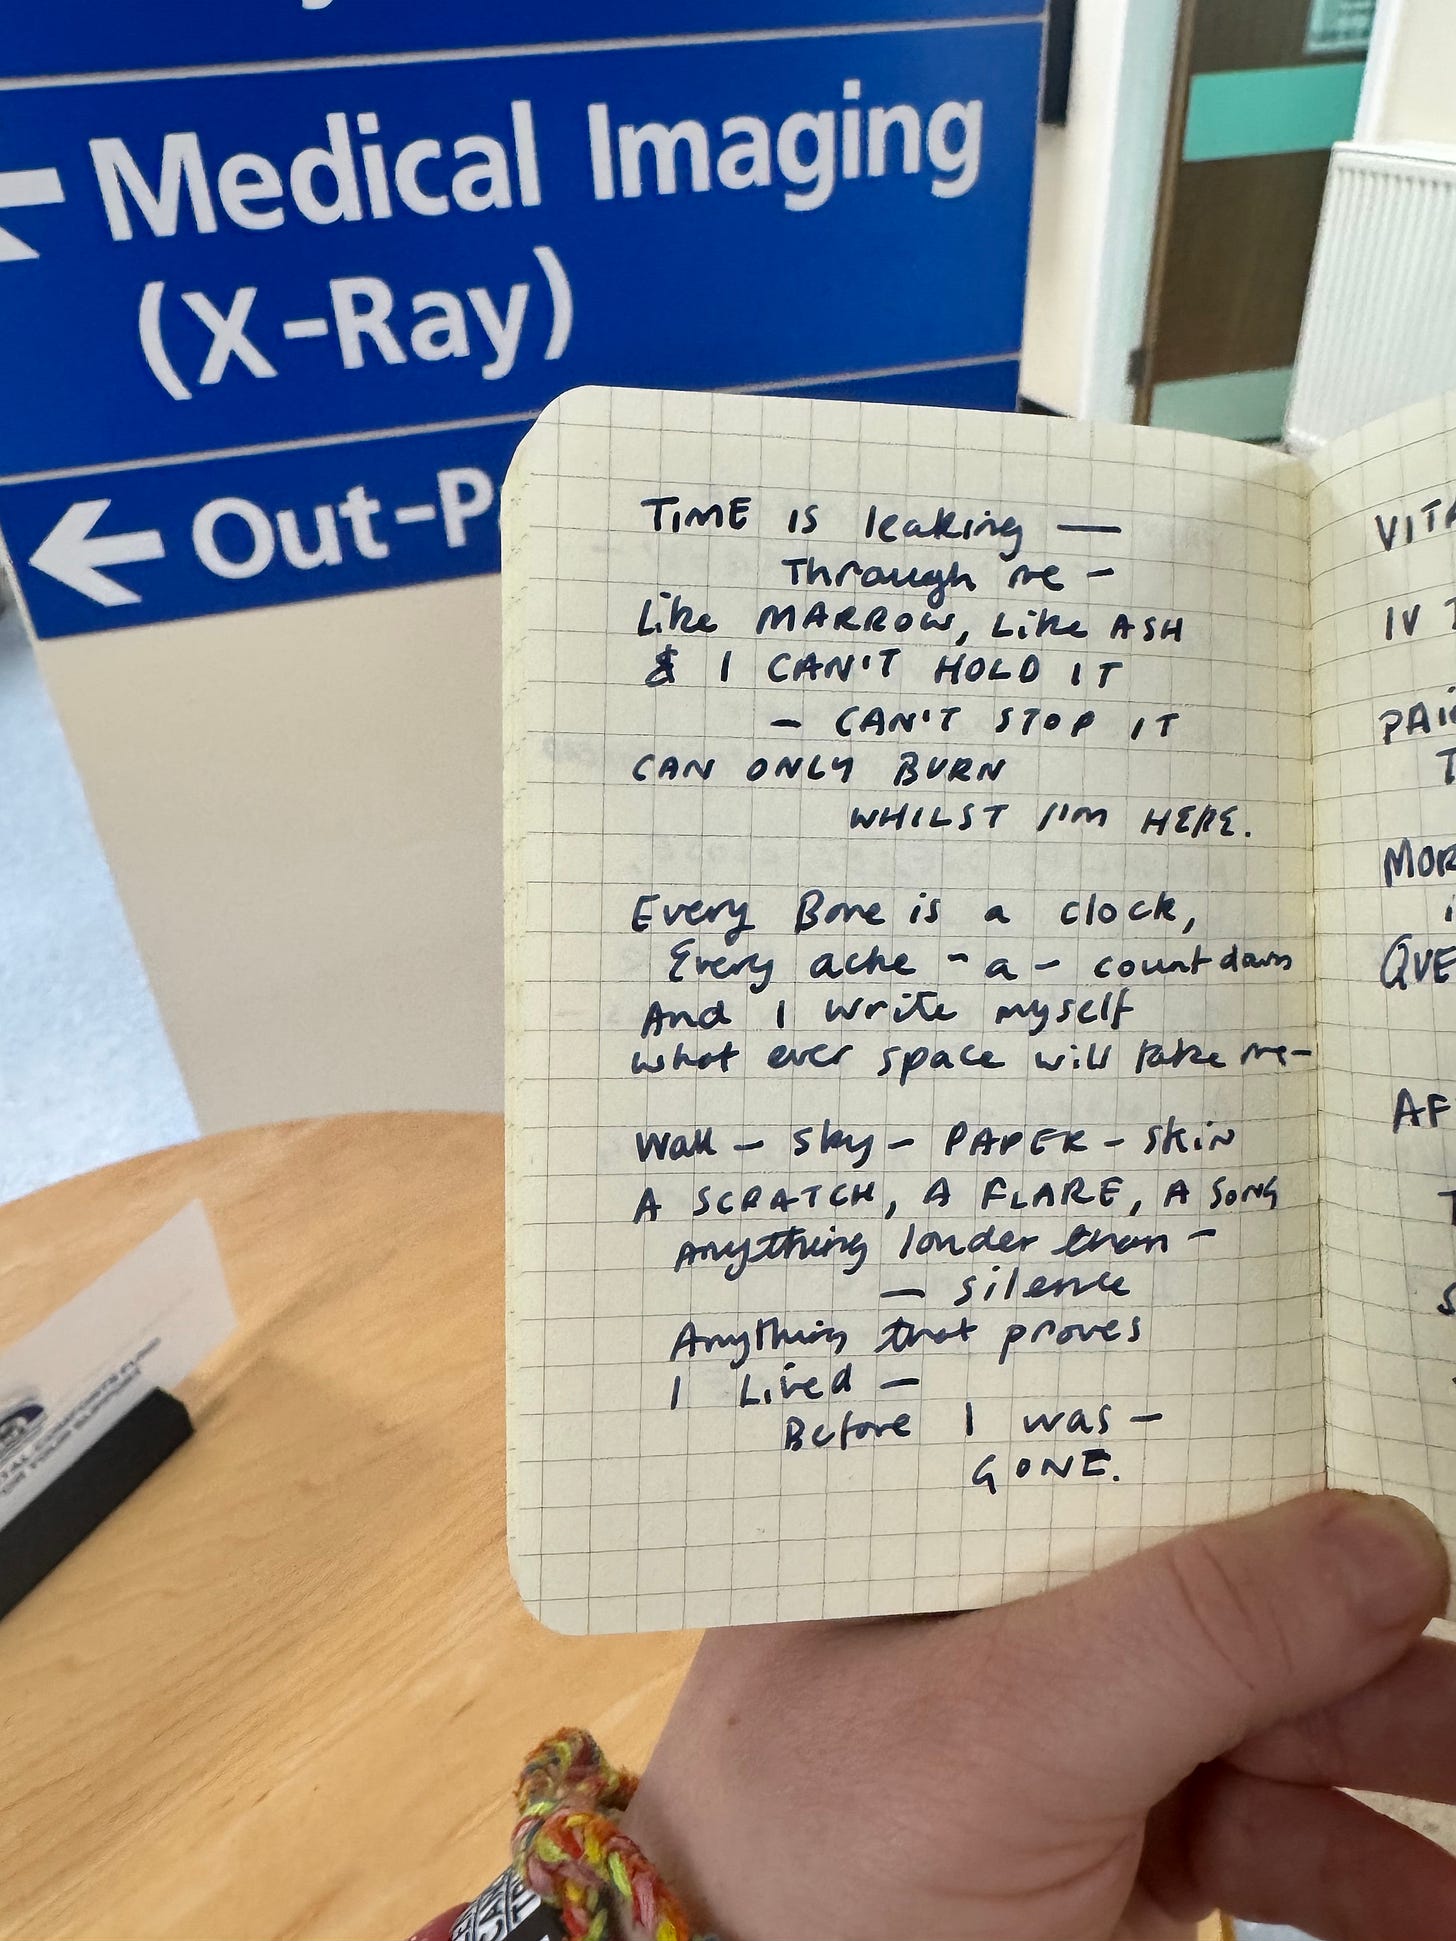 ← Medical Imaging
(X-Ray)
← Out-P
TIME IS leaking —
Through me –
Like MARROW, Like ASH
& I CAN'T HOLD IT
– CAN'T STOP IT
CAN ONLY BURN
WHILST I'M HERE.
Every Bone is a clock,
Every ache - a - countdown
And I write myself
what ever space will take me–
Wall – Sky – PAPER – Skin
A SCRATCH, A FLARE, A SONG
Anything louder than –
– silence
Anything that proves
I Lived –
Before I was –
GONE.
VITA
IV T
PAI
T
MOR
QUE
AF